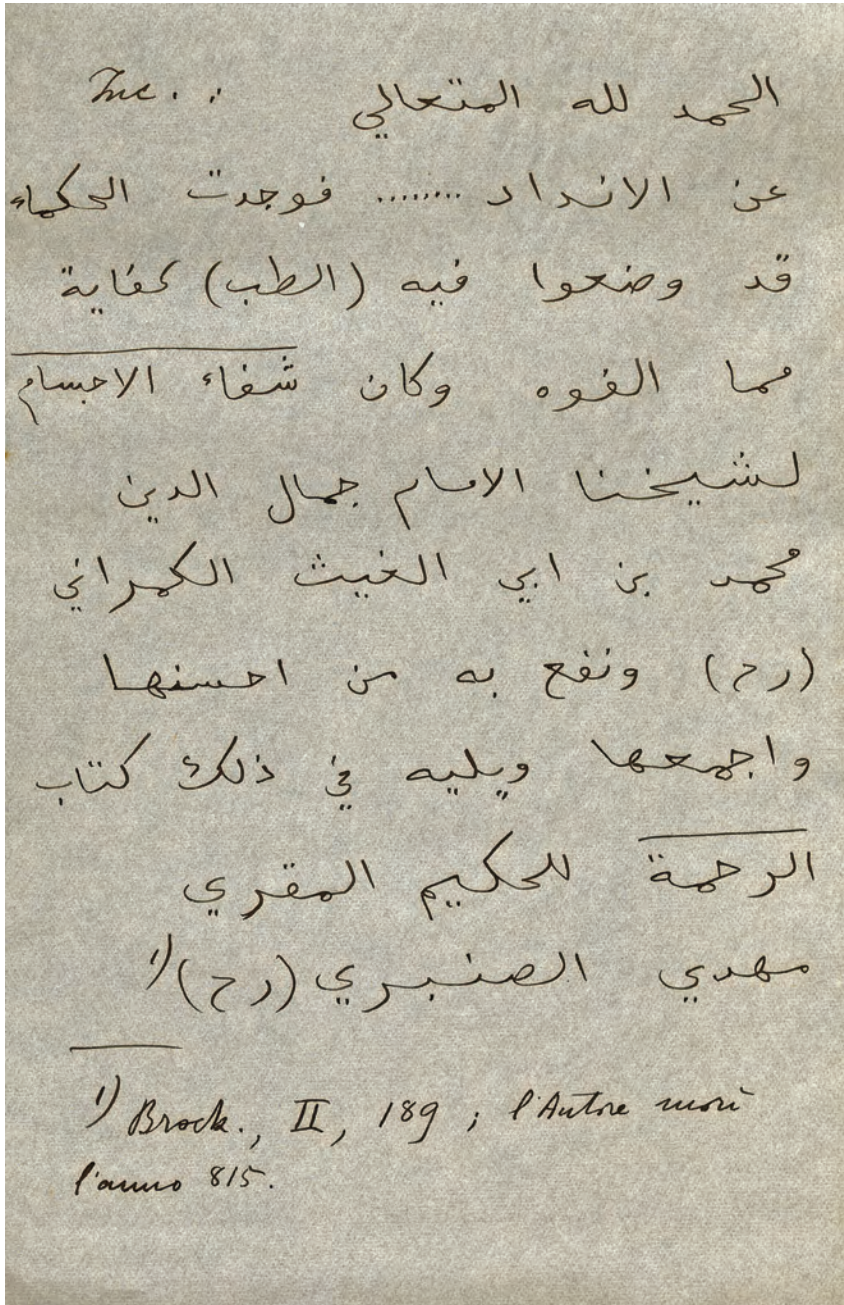 Inc. : الحمد لله المتعالي
عن الانداد ........ فوجدت الحكماء
قد وضعوا فيه (الطب) كفاية
مما الفوه وكان شفاء الاجسام
لشيخنا الامام جمال الدين
محمد بن ابي الغيث الكمراني
(رح) ونفع به من احسنها
واجمعها ويليه في ذلك كتاب
الرحمة للحكيم المقري
مهدي الصنبري (رح) 1)
1) Brock., II, 189 ; l'Autore morì
l'anno 815.